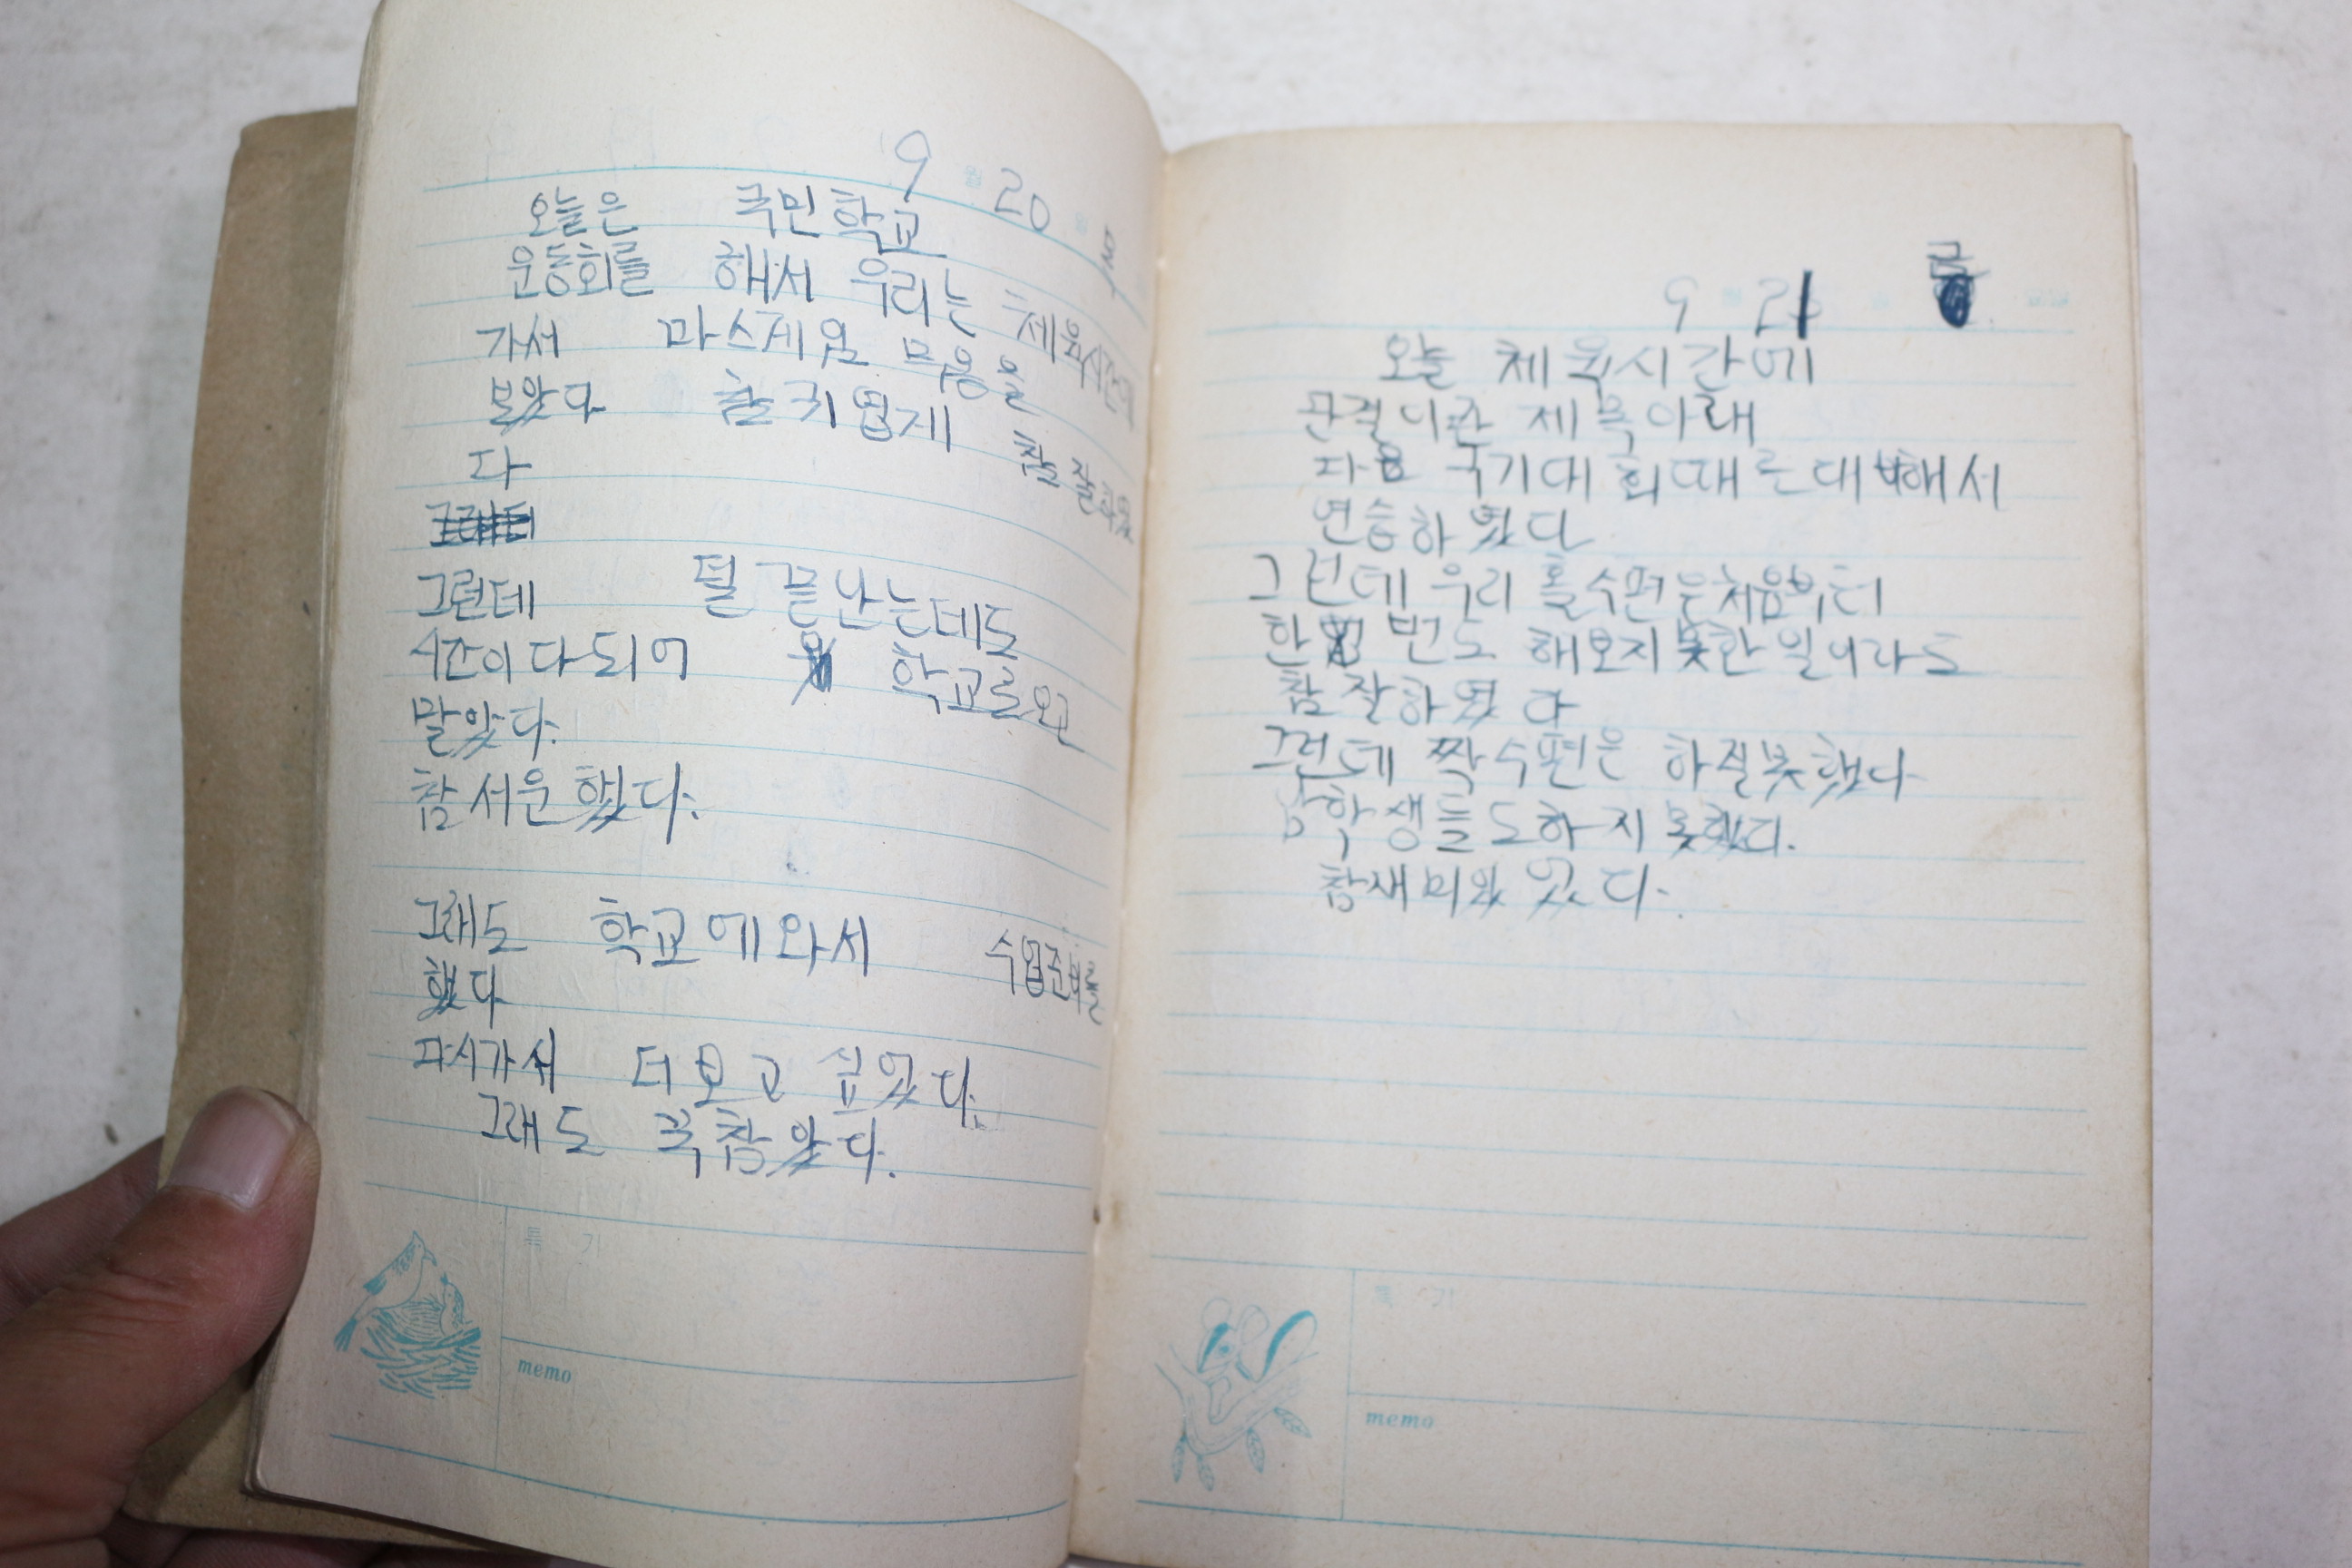 9 월 20 일 목
오늘은 국민학교
운동회를 해서 우리는 체육시간에
가서 마스게임 무용을
보았다 참 귀엽게 참 잘하였
다
그런데 덜 끝난는데도
시간이 다 되어 학교를 오고
말았다.
참 서운했다.
그래도 학교에 와서 수업준비를
했다
다시가서 더 보고 싶었다.
그래도 꾹 참았다.
특 기
memo
9 월 21 금
오늘 체육시간에
단결이란 제목아래
다음 국기대회때를 대비해서
연습하였다
그런데 우리 홀수편은 처음부터
한 번도 해보지 못한 일이라도
참 잘하였다
그런데 짝수편은 하질 못했다
남학생들도 하지 못했다.
참 새미있었다.
특 기
memo